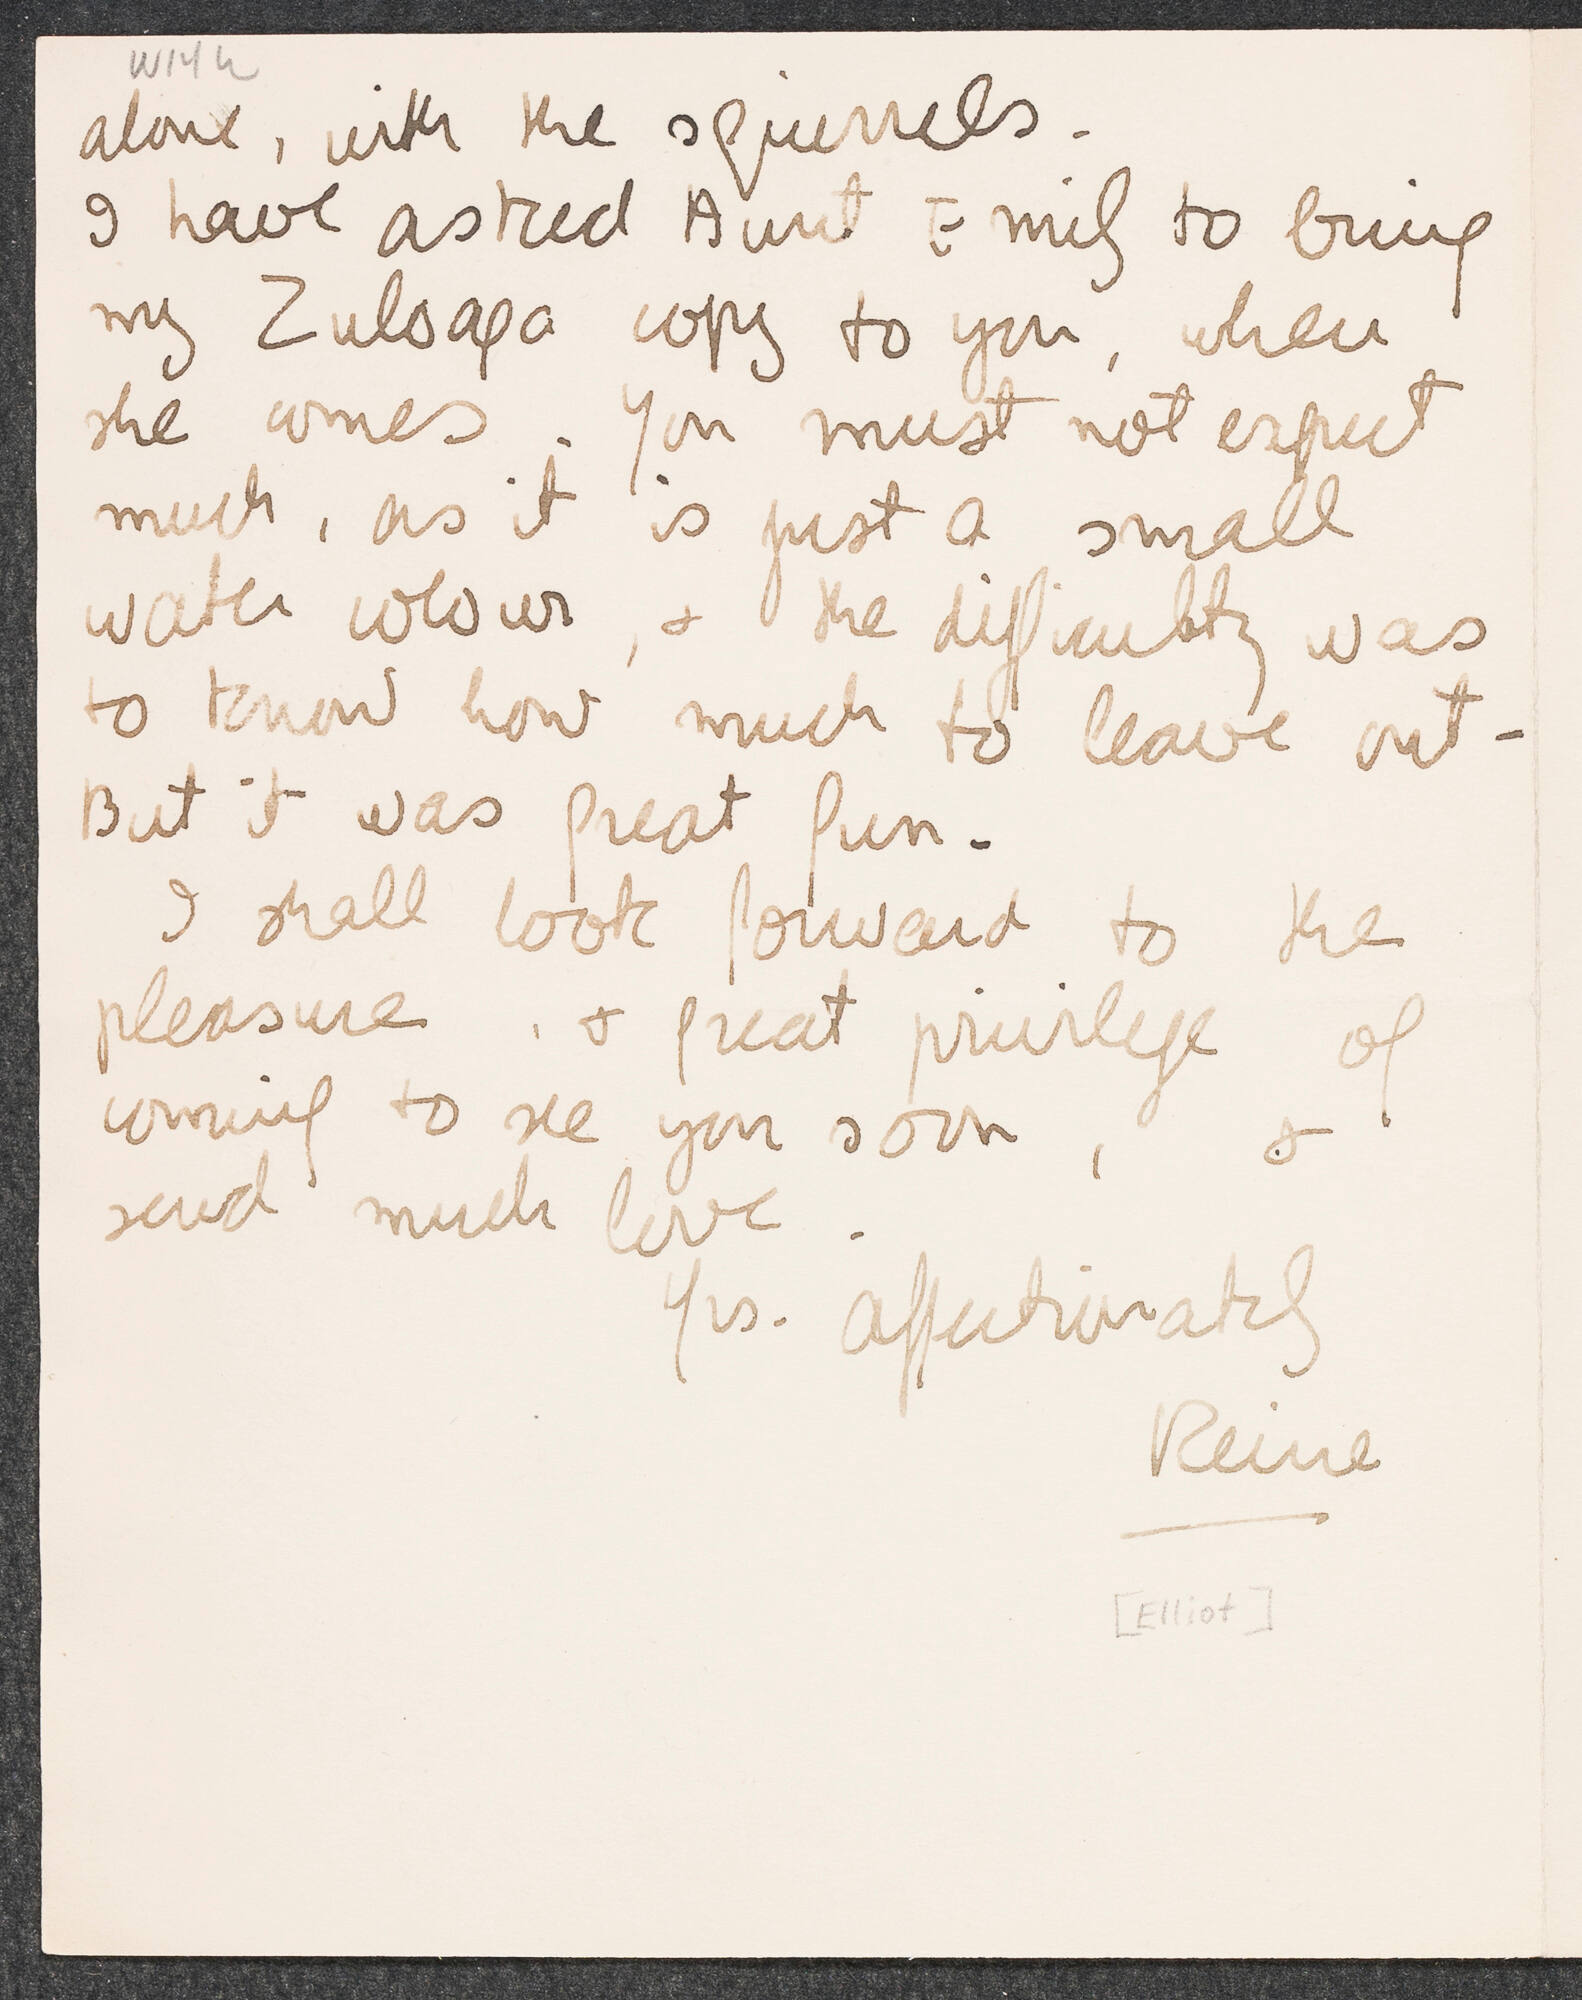 alone, with the squirrels.
I have asked Aunt Emily to bring
my Zuloaga copy to you, when
she comes. You must not expect
much, as it is just a small
water colour, & the difficulty was
to know how much to leave out -
But it was great fun.
I shall look forward to the
pleasure, & great privilege of
coming to see you soon, &
send much love.
Yrs. affectionately
Reine
[Elliot]